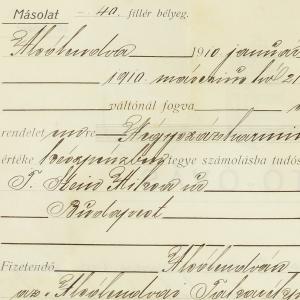 Másolat 40 fillér bélyeg.
Alsólendva 1910 január
1910 március hó 21
váltónál fogva
rendelet re Négyszázharmin
értéke készpénzben tegye számolásba tudós
T. Stein Miksa úr
Budapest
Fizetendő Alsólendván
az Alsólendvai Takarékp